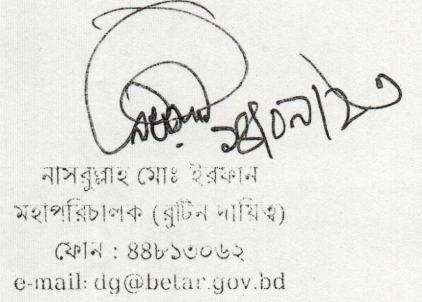 নাসরুল্লাহ মোঃ ইরফান
মহাপরিচালক (রুটিন দায়িত্ব)
ফোন : ৪৪৮১৩০৬২
e-mail: dg@betar.gov.bd